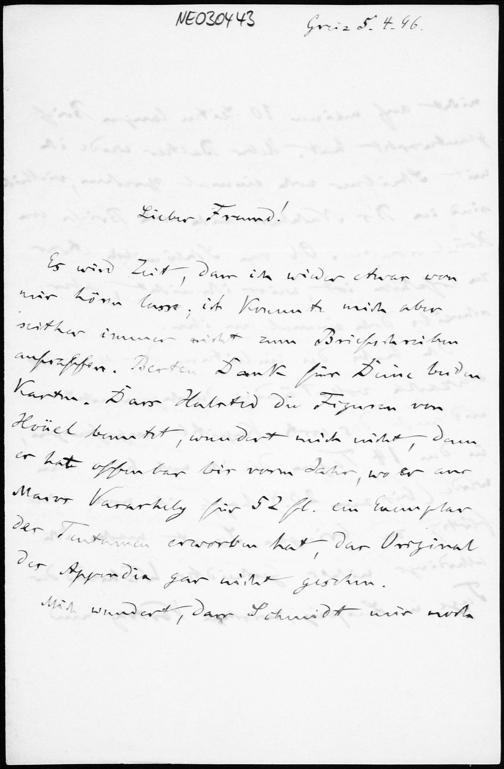 NE030443
Greiz 5.4.96.
Lieber Freund!
Es wird Zeit, dass ich wieder etwas von
mir hören lasse; ich konnte mich aber
seither immer nicht zum Briefschreiben
aufraffen. Besten Dank für Deine beiden
Karten. Dass Halsted die Figuren von
Hoüel benutzt, wundert mich nicht, denn
er hat offenbar bis vorm Jahr, wo er aus
Maros Vasarhely für 52 fl. ein Exemplar
des Tentamen erworben hat, das Original
des Appendix gar nicht gesehen.
Mich wundert, dass Schmidt mir noch